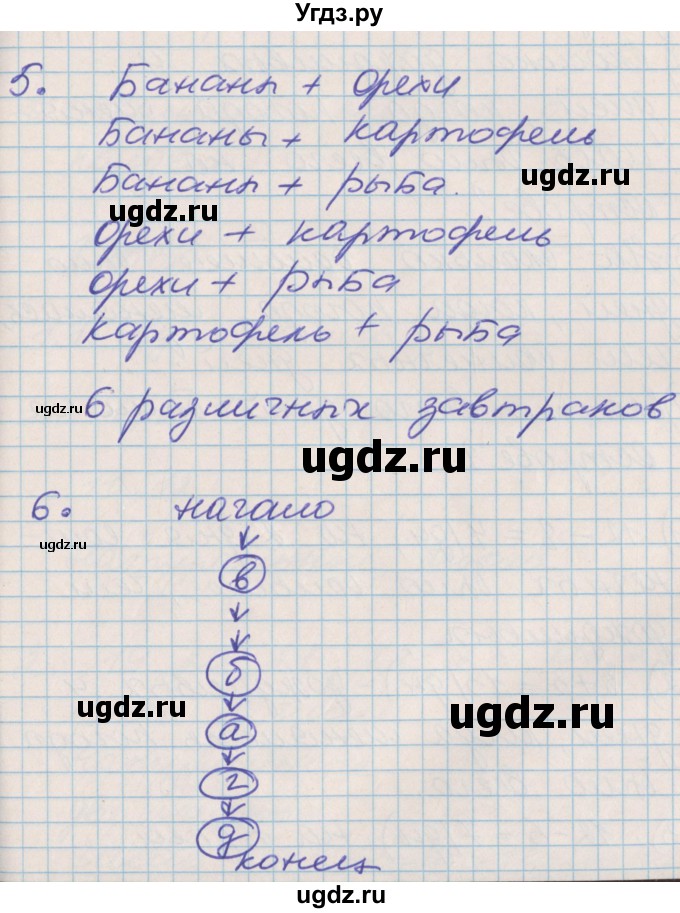 Угдз.ру
5. Бананы + орехи
Бананы + картофель
Бананы + рыба.
ugdz.ru
ugdz.ru
орехи + картофель
орехи + рыба
картофель + рыба
ugdz.ru
6 различных завтраков
ugdz.ru
6. начало
ugdz.ru
в
б
ugdz.ru
ugdz.ru
а
г
д
конец
ugdz.ru